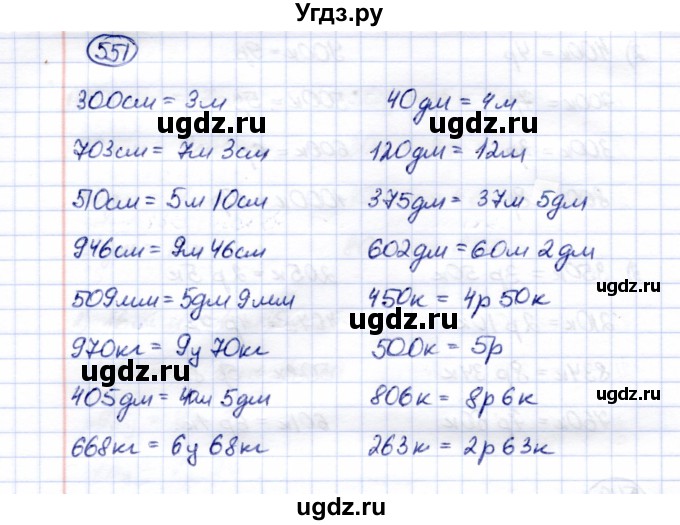 Угдз.ру
551
300см = 3м 40дм = 4м
ugdz.ru ugdz.ru
703см = 7м 3см 120дм = 12м
510см = 5м 10см 375дм = 37м 5дм
946см = 9м 46см 602дм = 60м 2дм
ugdz.ru
509мм = 5дм 9мм 450к = 4р 50к
ugdz.ru
970кг = 9ц 70кг 500к = 5р
ugdz.ru
405дм = 40м 5дм 806к = 8р 6к
668кг = 6ц 68кг 263к = 2р 63к
ugdz.ru